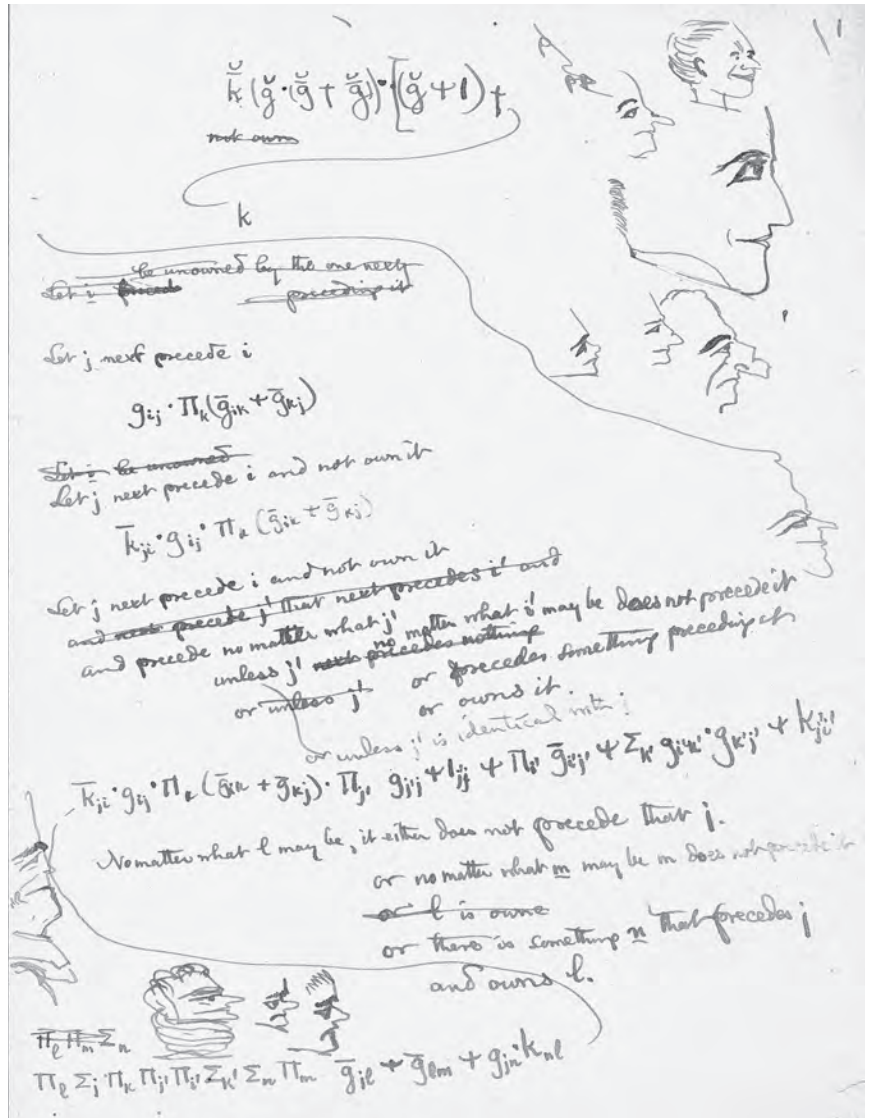 k̄̆ (ğ·(ḡ̆ + ḡ̆))·[(ğ + 1) †
not own
k
be unowned by the one next
Let i preced preceding it
Let j next precede i
g_ij · Π_k (ḡ_ik + ḡ_kj)
Let i be unowned
Let j next precede i and not own it
k̄_ji · g_ij · Π_k (ḡ_ik + ḡ_kj)
Let j next precede i and not own it
and next precede j' that next precedes i' and
and precede no matter what j'
unless j' next precedes nothing no matter what i' may be does not precede it
or unless j' or precedes something preceding it
or owns it.
or unless j' is identical with j
k̄_ji · g_ij · Π_k (ḡ_ik + ḡ_kj) · Π_j' g_j'j + 1_jj' + Π_i' ḡ_i'j' + Σ_k' g_i'k' · g_k'j' + k_j'i'
No matter what l may be, it either does not precede that j.
or no matter what m may be m does not precede it
or l is owne
or there is something n that precedes j
and owns l.
Π_l Π_m Σ_n
Π_l Σ_j Π_k Π_j' Π_i' Σ_k' Σ_n Π_m ḡ_jl + ḡ_lm + g_jn · k_nl